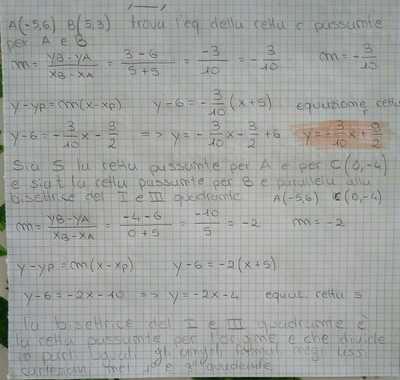 A(-5,6) B(5,3) trova l'eq. della retta r passante
per A e B
m = yB-yA / xB-xA = 3-6 / 5+5 = -3 / 10 = -3/10 m = -3/10
y-yp = m(x-xp) y-6 = -3/10 (x+5) equazione retta
y-6 = -3/10 x - 3/2 => y = -3/10 x - 3/2 + 6 y = -3/10 x + 9/2
Sia s la retta passante per A e per C(0,-4)
e sia t la retta passante per B e parallela alla
bisettrice del I e III quadrante A(-5,6) C(0,-4)
m = yB-yA / xB-xA = -4-6 / 0+5 = -10 / 5 = -2 m = -2
y-yp = m(x-xp) y-6 = -2(x+5)
y-6 = -2x-10 => y = -2x-4 equaz. retta s
la bisettrice del I e III quadrante è
la retta passante per l'origine e che divide
in parti uguali gli angoli formati dagli assi
cartesiani nel 1° e 3° quadrante